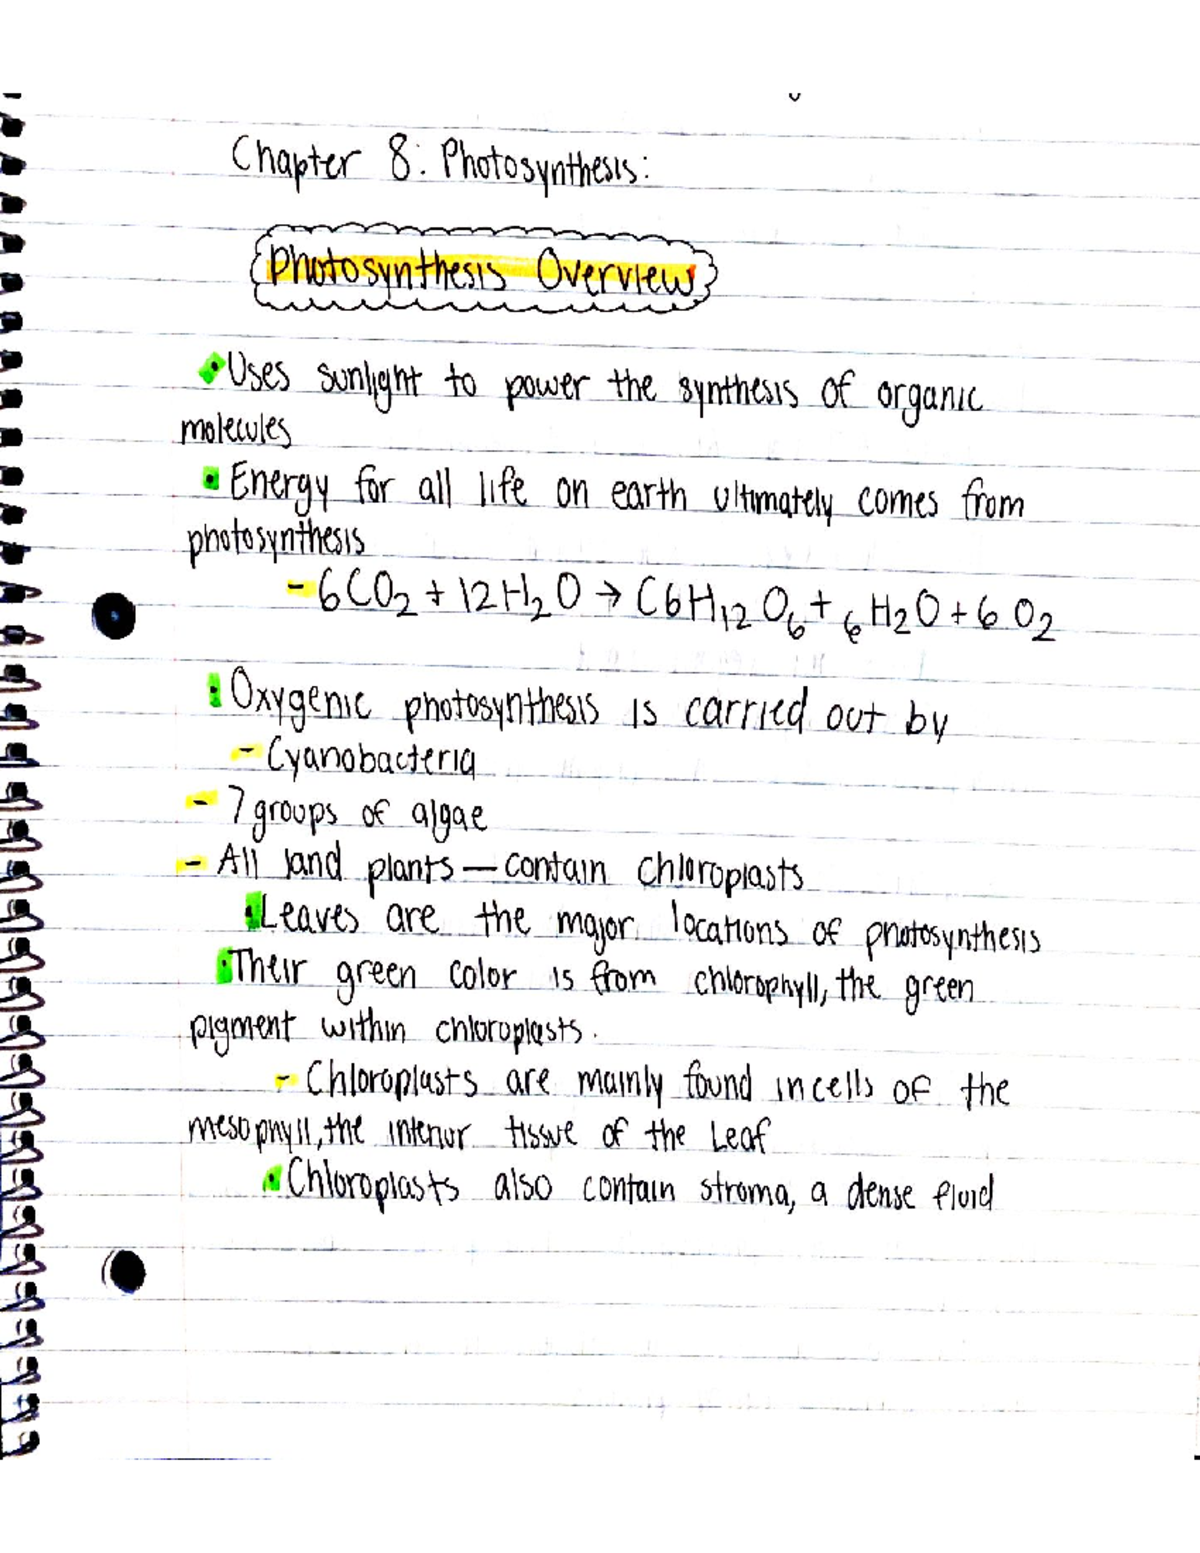 Chapter 8: Photosynthesis:
Photosynthesis Overview
• Uses sunlight to power the synthesis of organic
molecules
• Energy for all life on earth ultimately comes from
photosynthesis
- 6CO₂ + 12H₂O → C6H₁₂O₆ + 6H₂O + 6O₂
• Oxygenic photosynthesis is carried out by
- Cyanobacteria
- 7 groups of algae
- All land plants — contain chloroplasts
• Leaves are the major locations of photosynthesis
• Their green color is from chlorophyll, the green
pigment within chloroplasts.
- Chloroplasts are mainly found in cells of the
mesophyll, the interior tissue of the Leaf
• Chloroplasts also contain stroma, a dense fluid